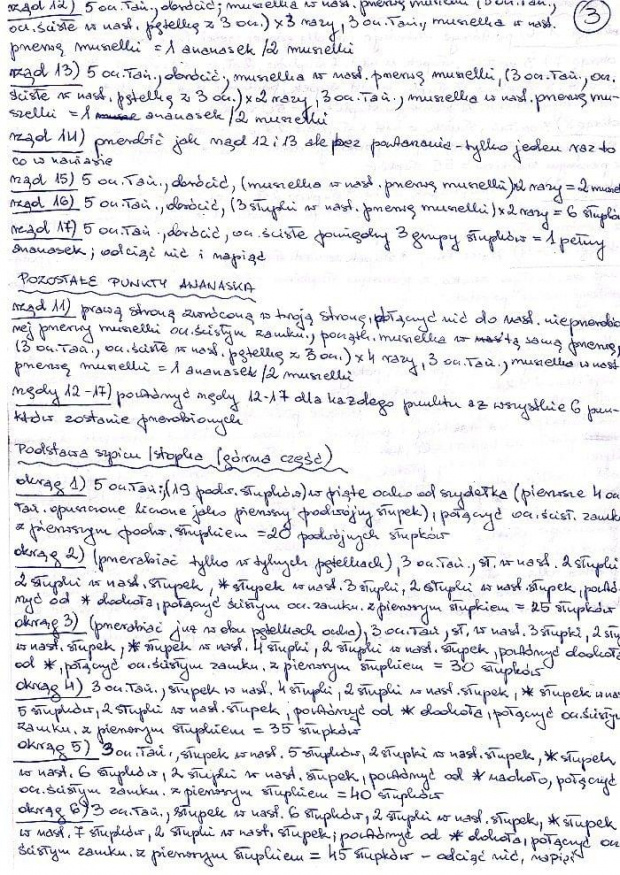 rząd 12) 5 oc.łań., obrócić, muszelka w nast. przerwę muszelki (3 oc.łań.,
oc.ściste w nast. pętelkę z 3 oc.) x 3 razy, 3 oc.łań., muszelka w nast.
przerwę muszelki = 1 ananasek/2 muszelki
3
rząd 13) 5 oc.łań., obrócić, muszelka w nast. przerwę muszelki, (3 oc.łań., oc.
ściste w nast. pętelkę z 3 oc.) x 2 razy, 3 oc.łań., muszelka w nast. przerwę mu-
szelki = 1 ananasek/2 muszelki
rząd 14) przerobić jak rząd 12 i 13 ale bez powtarzania - tylko jeden raz to
co w nawiasie
rząd 15) 5 oc.łań., obrócić, (muszelka w nast. przerwę muszelki) x 2 razy = 2 muszel
rząd 16) 5 oc.łań., obrócić, (3 słupki w nast. przerwę muszelki) x 2 razy = 6 słupków
rząd 17) 5 oc.łań., obrócić, oc. ściste pomiędzy 3 grupy słupków = 1 pełny
ananasek; odciąć nić i napiąć
POZOSTAŁE PUNKTY ANANASKA
rząd 11) prawą stroną zwróconą w twoją stronę, połączyć nić do nast. nieprzerobio
nej przerwy muszelki oc.ścistym zamku., począt. muszelka w tą samą przerwę,
(3 oc.łań., oc.ściste w nast. pętelkę z 3 oc.) x 4 razy, 3 oc.łań., muszelka w nast
przerwę muszelki = 1 ananasek/2 muszelki
rzędy 12-17) powtórzyć rzędy 12-17 dla każdego punktu aż wszystkie 6 pun-
któw zostanie przerobionych
Podstawa szpicu/stopka (górna część)
okrąg 1) 5 oc.łań.; (19 podw. słupków) w piąte oczko od szydełka (pierwsze 4 oc
łań. opuszczone liczone jako pierwszy podwójny słupek), połączyć oc.ścist. zamku
z pierwszym podw. słupkiem = 20 podwójnych słupków
okrąg 2) (przerabiać tylko w tylnych pętelkach), 3 oc.łań., st. w nast. 2 słupki
2 słupki w nast. słupek, * słupek w nast. 3 słupki, 2 słupki w nast. słupek, powtó-
rzyć od * dookoła, połączyć ścistym oc. zamku. z pierwszym słupkiem = 25 słupków
okrąg 3) (przerabiać już w obu pętelkach oczka), 3 oc.łań., st. w nast. 3 słupki, 2 słup
w nast. słupek, * słupek w nast. 4 słupki, 2 słupki w nast. słupek, powtórzyć dookoła
od *, połączyć oc.ścistym zamku. z pierwszym słupkiem = 30 słupków
okrąg 4) 3 oc.łań., słupek w nast. 4 słupki, 2 słupki w nast. słupek, * słupek w nas
5 słupków, 2 słupki w nast. słupek, powtórzyć od * dookoła, połączyć oc.ścisty
zamku. z pierwszym słupkiem = 35 słupków
okrąg 5) 3 oc.łań., słupek w nast. 5 słupków, 2 słupki w nast. słupek, * słupek
w nast. 6 słupków, 2 słupki w nast. słupek, powtórzyć od * naokoło, połączyć
oc.ścistym zamku. z pierwszym słupkiem = 40 słupków
okrąg 6) 3 oc.łań., słupek w nast. 6 słupków, 2 słupki w nast. słupek, * słupek
w nast. 7 słupków, 2 słupki w nast. słupek, powtórzyć od * dookoła, połączyć oc
ścistym zamku. z pierwszym słupkiem = 45 słupków - odciąć nić, napiąć